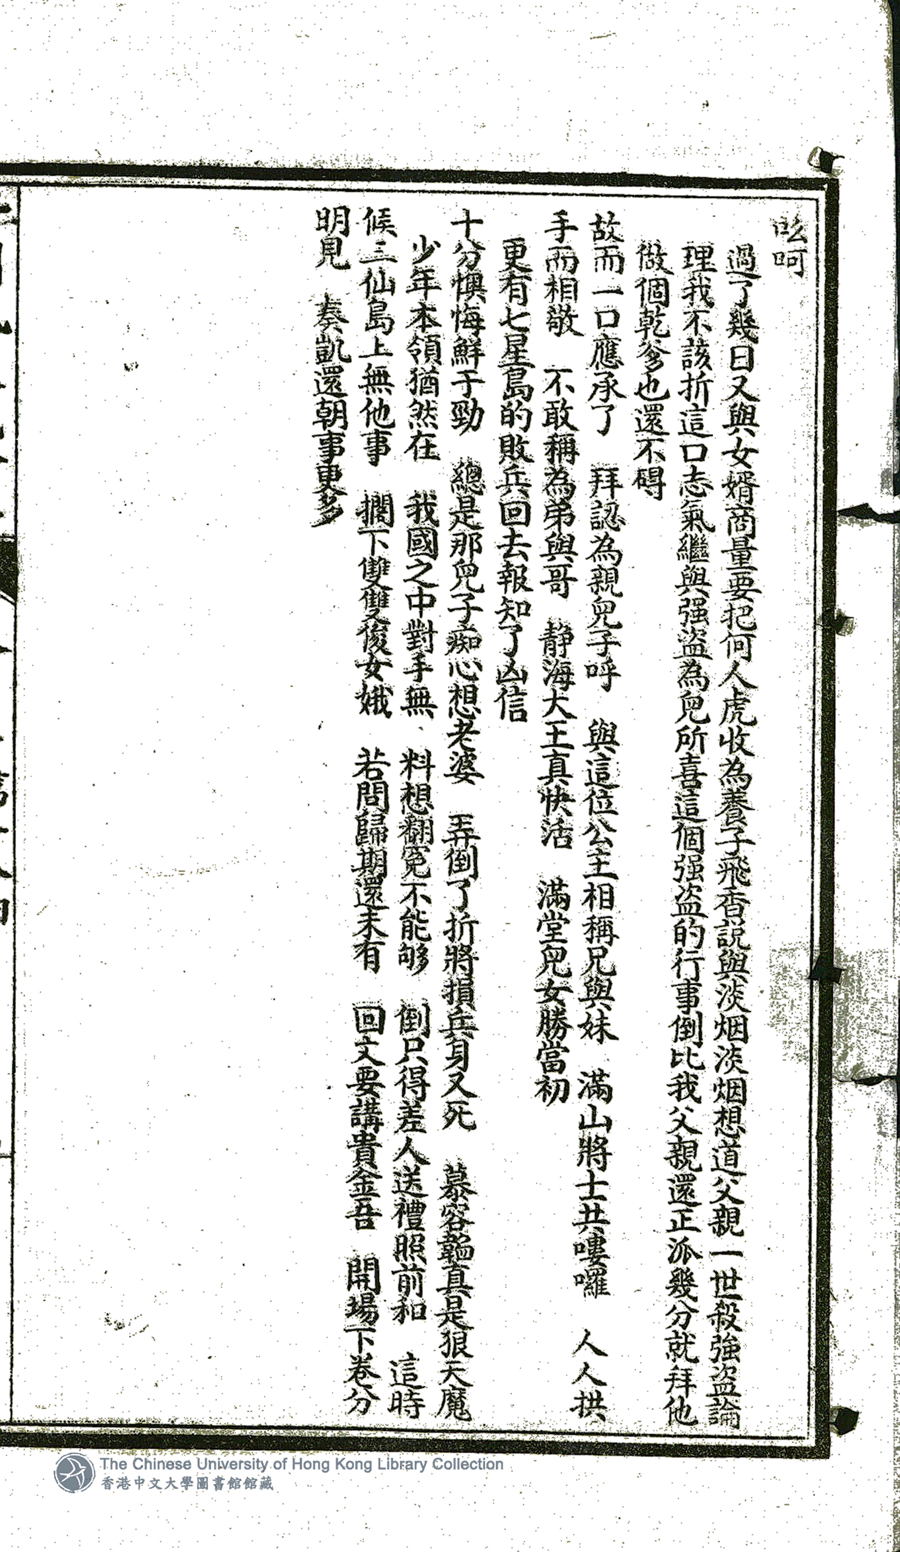 吆呵
過了幾日又與女婿商量要把何人虎收為養子飛香説與淡烟淡烟想道父親一世殺強盜論
理我不該折這口志氣繼與强盜為兒所喜這個强盜的行事倒比我父親還正派幾分就拜他
做個乾爹也還不碍
故而一口應承了　拜認為親兒子呼　與這位公主相稱兄與妹　滿山將士共嘍囉　人人拱
手而相敬　不敢稱為弟與哥　静海大王真快活　滿堂兒女勝當初
更有七星島的敗兵回去報知了凶信
十分懊悔鮮于勁　總是那兒子痴心想老婆　弄倒了折將損兵身又死　慕容韜真是狠天魔
少年本領猶然在　我國之中對手無　料想翻冤不能够　倒只得差人送禮照前和　這時
候三仙島上無他事　擱下雙雙俊女娥　若問歸期還未有　回文要講貴金吾　開場下卷分
明見　奏凱還朝事更多
The Chinese University of Hong Kong Library Collection
香港中文大學圖書館館藏